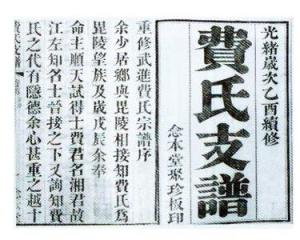 光緒歲次乙酉續修
費氏支譜
念本堂聚珍板印
重修武進費氏宗譜序
余少居鄉與毘陵相接知費氏爲
毘陵望族及歲戊辰余奉
命主順天試得士費君名湘君故
江左知名士晉接之下又詢知費
氏之代有隱德余心甚重之越十
費氏支譜